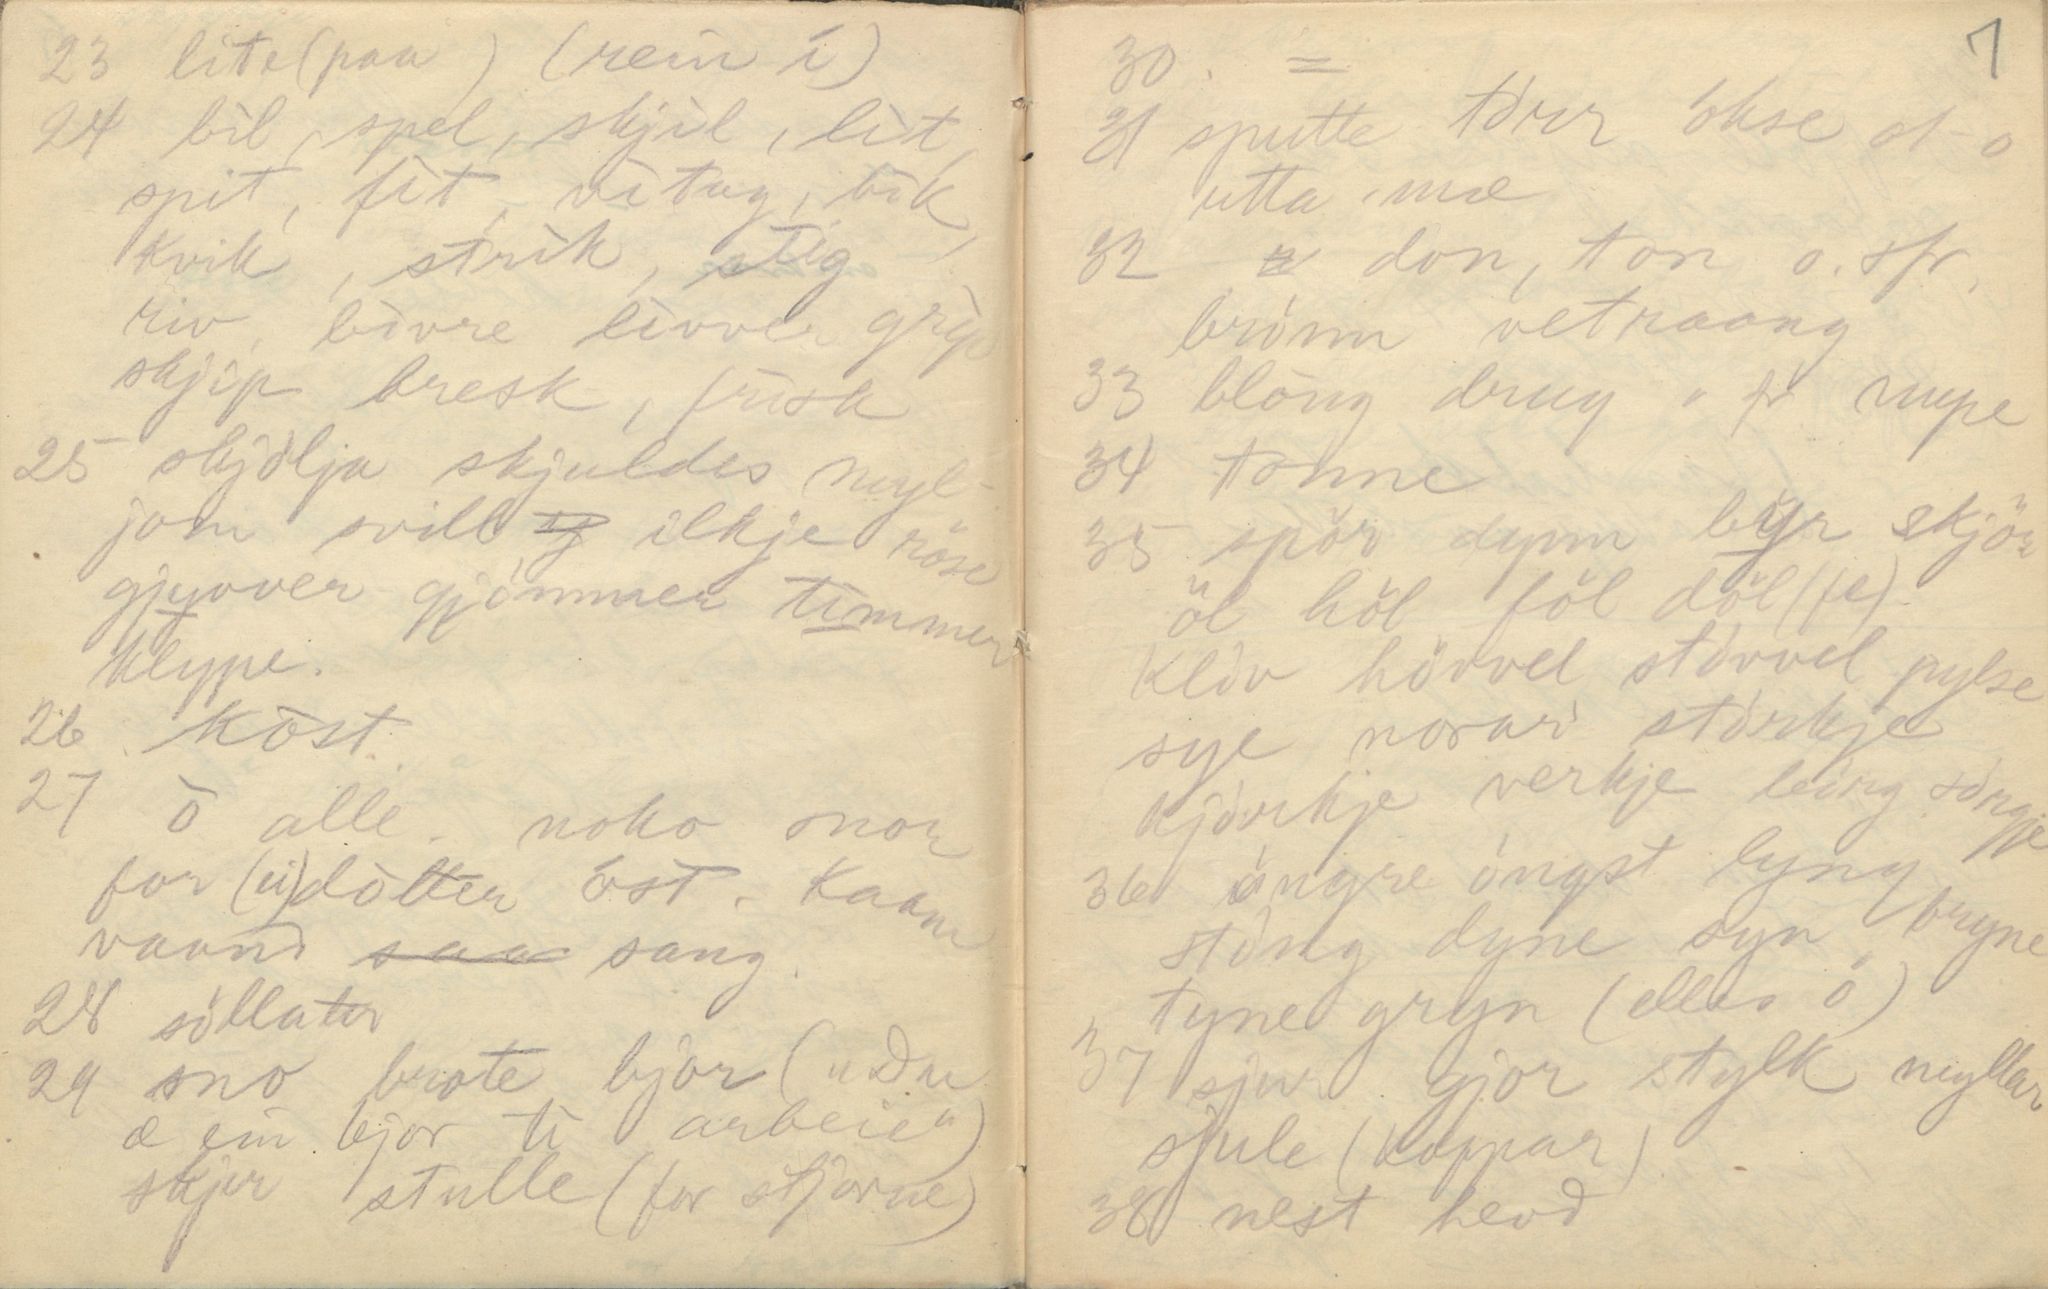 23 lite (paa) (rein i)
24 bil, spel, skjil, lit,
spit, fit, vitug, bik,
kvik, strik, stig
riv, bivre livver grip
skjip bresk, frisk
25 skjölja skjuldes mylˑ
jom svill ilkje röse
gjyvver gjömmer timmer
klype.
26 köst
27 ò alle. noko snor
for (ei) dòtter òst. Kaam
vaand saa sang.
28 söllater
29 sno brote bjor ("du
æ ein bjor ti arbeie")
skjer stulle (for stjorne)
7
30. =
31 sputte törr økse st-o
utta mæ
32 don, ton o. sfr,
brönn vetraang
33 blöng drug o fr nupe
34 tonne
35 spör dynn byr skjör
öl höl föl döl (fe)
klöv hövvel stövvel pylse
sye norard störkje
kjörkje verkje leing söngje
36 öngre öngst lyng
stöng dyne syn, bryne
tyne gryn (elles ö)
37 sjur gjor stylk myllar
sjule (koppar)
38 nest hevd